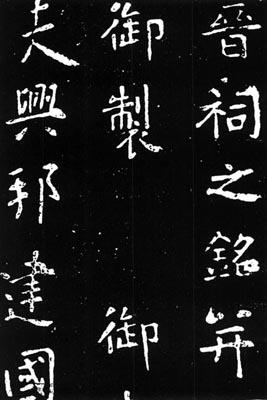 晉祠之銘并
御製 御
夫興邦建國